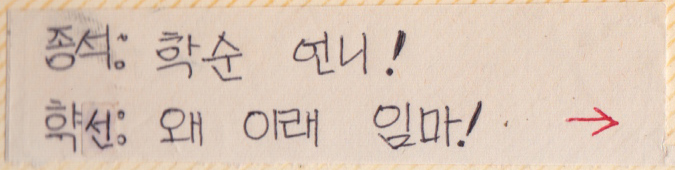 종석: 학순 언니!
학선: 왜 이래 임마! →